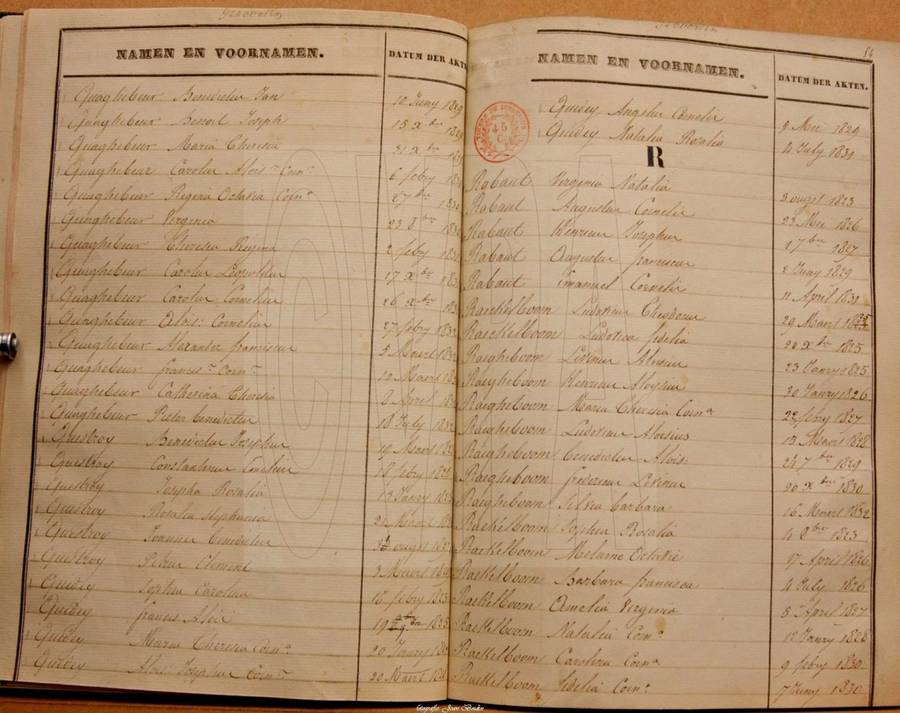 NAMEN EN VOORNAMEN. DATUM DER AKTEN
Quaghebeur Benedictus Jan 10 Juny 1829
Quaghebeur Joseph 15 X bre
Quaghebeur Maria Theresia 31 X bre
Quaghebeur Carolus Alois Corn 6 febry
Quaghebeur Regina Octavia Corna 27
Quaghebeur Virginia 23 8 bre
Quaghebeur Theresia Regina 2 feby
Quaghebeur Carolus Leopoldus 17 X bre
Quaghebeur Carolus Cornelius 26 X bre
Quaghebeur Alois: Cornelius 27 febry
Quaghebeur Alexander franciscus 5 Maart
Quaghebeur francis Corn 12 Maart
Quaghebeur Catherina Theresia 2 April
Quaghebeur Pieter benedictus 18 July
Questroy Benedictus Josephus 19 Maart
Questroy Constantinus 18 febry
Questroy Josepha Rosalia 13 Janry
Questroy Rosalia Stephania 21 Maart
Questroy Joannes benedictus ougst
Questroy Petrus Clement 3 Maart
Quidey Sophia Carolina 15 febry
Quidey francis Alois 19
Quidey Maria Theresia Corna 20 Janry
Quidey Alois Josephus Corn 22 Maart
NAMEN EN VOORNAMEN. DATUM DER AKTEN.
Quidey Angelus Cornelis 9 Mei 1829
Quidey Natalia Rosalia 4 July 1831
R
Rabaut Virginia Natalia 3 ougst 1823
Rabaut Augustus Cornelis 23 Mei 1826
Rabaut Henricus Josephus 1 7 bre 1827
Rabaut Augustus franciscus 2 Juny 1829
Rabaut Emanuel Cornelis 11 April 1831
Raekelboom Ludovicus Theodorus 29 Maart
Raeckelboom Ludovica fidelia 20 X bre 1825
Raigheboom Livinus Aloysius 23 Janry 1825
Raigheboom Henricus Aloysius 30 Janry 1826
Raigheboom Maria Theresia Corna 22 febry 1827
Raigheboom Ludovicus Aloisius 13 Maart 1828
Raigheboom benedictus Alois: 24 7 bre 1829
Raigheboom fredericus Livinus 20 X bre 1830
Raigheboom Silvia barbara 16 Maart 1832
Raekelboom Sophia Rosalia 4 8 bre 1823
Raekelboom Melanie 17 April 1826
Raekelboom Barbara francisca 4 July 1826
Raekelboom Amelia Virginia 8 April 1827
Raekelboom Natalia Corna 12 Janry 1828
Raekelboom Carolina Corna 9 febry 1830
Raekelboom fidelia Corn: 7 Juny 1830